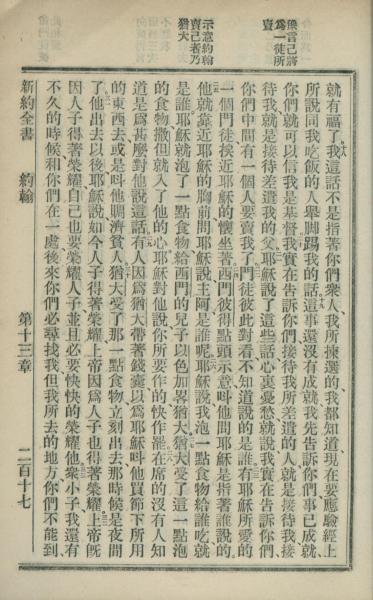 就有福了我這話不是指著你們衆人、我所揀選的、我都知道、現在要應驗經上
所說同我吃飯的人舉脚踢我的話這事還沒有成就我先告訴你們事已成就
你們就可以信我是基督我實在告訴你們接待我所差遣的人、就是接待我接
待我、就是接待差遣我的父耶穌說了這些話心裏憂愁就說我實在告訴你們、
你們中間有一個人要賣我了門徒彼此對看不知道說的是誰有耶穌所愛的
一個門徒挨近耶穌的懷坐著西門彼得點頭示意呌他問耶穌是指著誰說的、
他就靠近耶穌的胸前問耶穌說主阿是誰呢耶穌說我泡一點食物給誰吃就
是誰耶穌就泡了一點食物給西門的兒子以色加畧猶大猶大受了這一點泡
的食物撒但就入了他的心耶穌對他說你所要作的快作罷在席的沒有人知
道是爲甚麼對他說這話有人因爲猶大帶著錢囊以爲耶穌呌他買節下所用
的東西去或是呌他賙濟貧人猶大受了那一點食物立刻出去那時候是夜間
了他出去以後耶穌說如今人子得著榮耀上帝因爲人子也得著榮耀上帝旣
因人子得著榮耀自己也要榮耀人子並且必要快快的榮耀他衆小子我還有
不久的時候和你們在一處後來你們必尋找我但我所去的地方你們不能到
新約全書 約翰 第十三章 二百十七
預言己將
爲一徒所
賣
示意約翰
賣己者乃
猶大